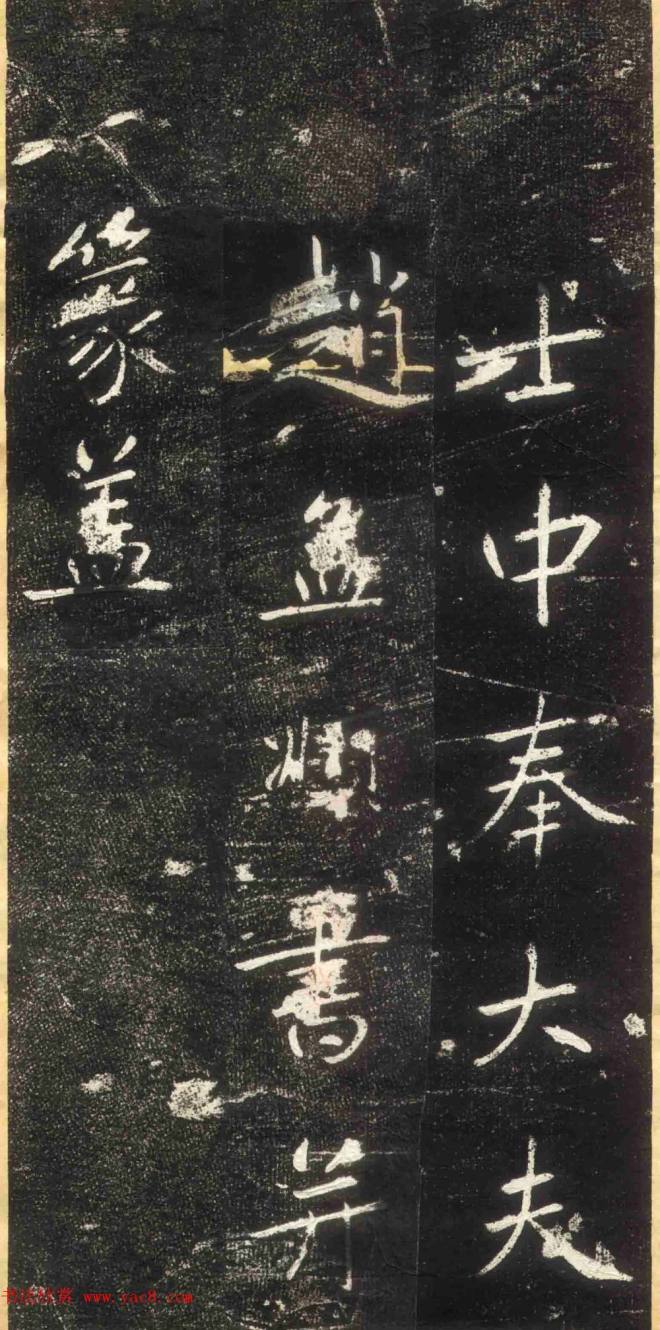 士中奉大夫
趙孟頫書并
篆盖
书法欣赏 www.yac8.com